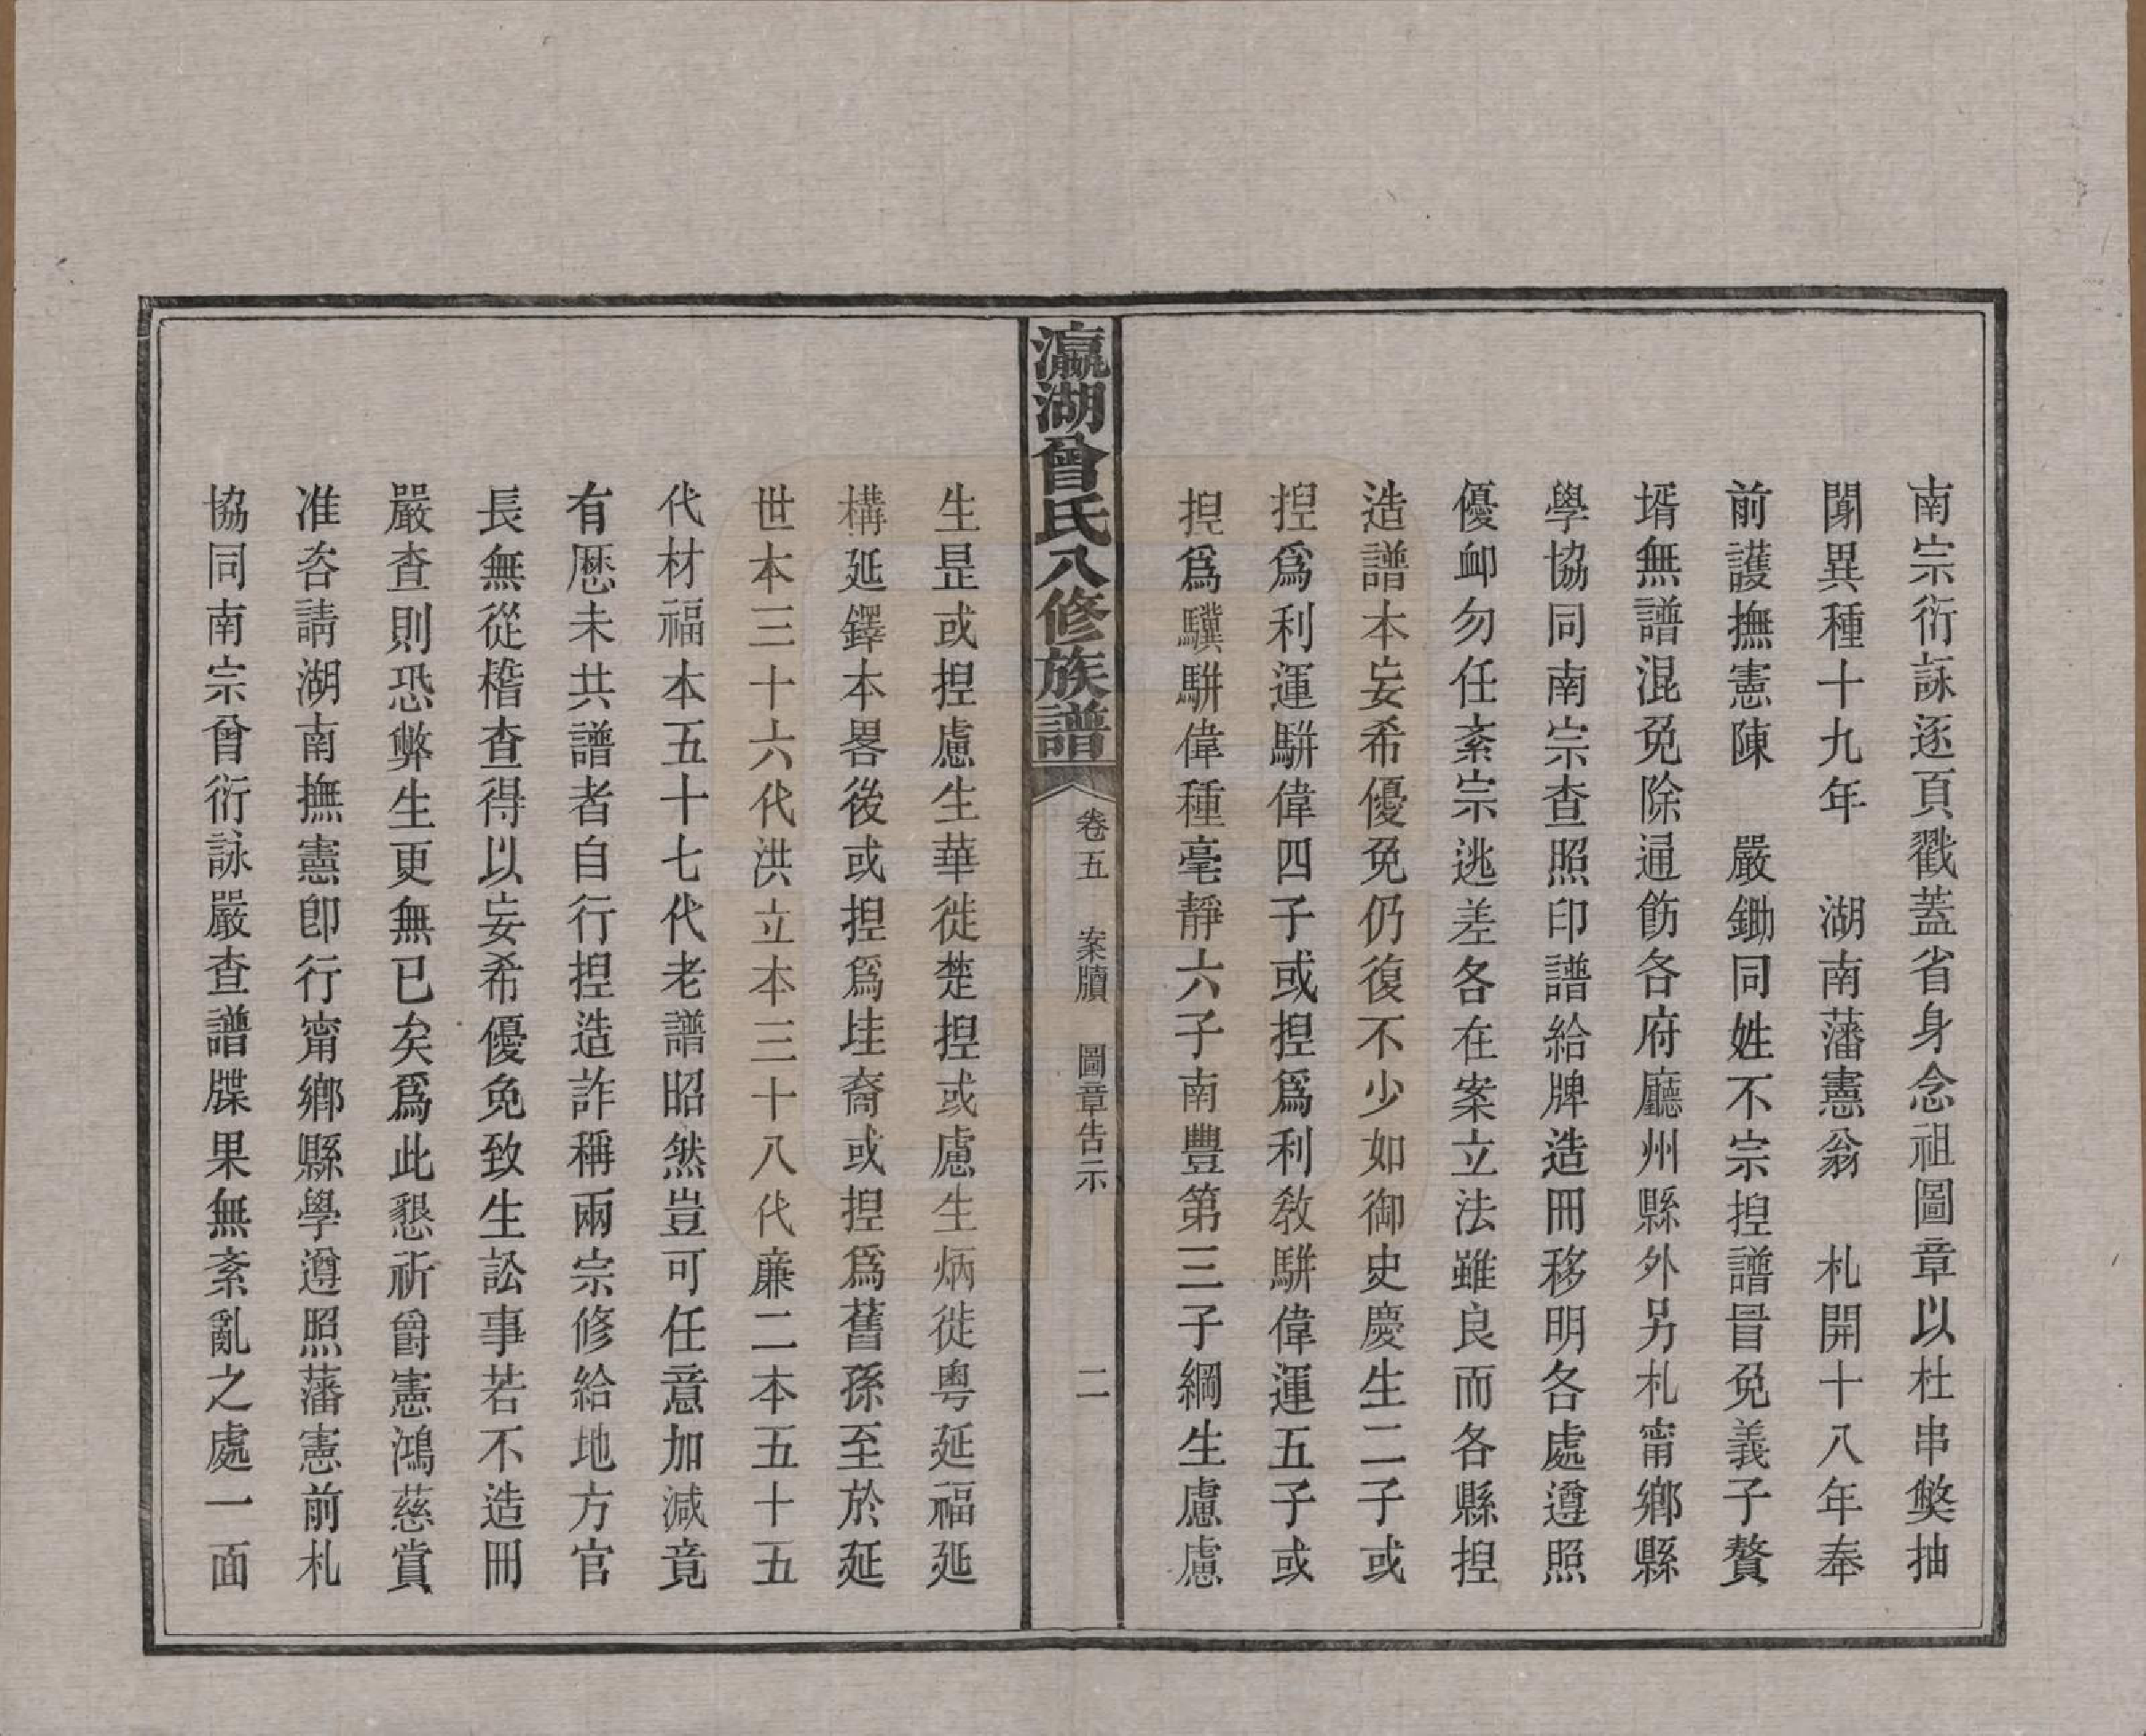 南宗衍詠逐頁戳蓋省身念祖圖章以杜串獘抽
閒異種十九年　湖南藩憲翁　札開十八年奉
前護撫憲陳　嚴鋤同姓不宗揑譜冒免義子贅
壻無譜混免除通飭各府廳州縣外另札甯鄉縣
學協同南宗查照印譜給牌造冊移明各處遵照
優卹勿任紊宗逃差各在案立法雖良而各縣揑
造譜本妄希優免仍復不少如御史慶生二子或
揑爲利運駢偉四子或揑爲利教駢偉運五子或
揑爲驥駢偉種毫靜六子南豐第三子綱生慮慮
瀛湖曾氏八修族譜
卷五　案牘　圖章告示　二
生昱或揑慮生華徙楚揑或慮生炳徙粵延福延
構延鐸本畧後或揑爲㘶裔或揑爲舊孫至於延
世本三十六代洪立本三十八代亷二本五十五
代材福本五十七代老譜昭然豈可任意加減竟
有厯未共譜者自行揑造詐稱兩宗修給地方官
長無從稽查得以妄希優免致生訟事若不造冊
嚴查則恐弊生更無已矣爲此懇祈爵憲鴻慈賞
准咨請湖南撫憲卽行甯鄉縣學遵照藩憲前札
協同南宗曾衍詠嚴查譜牒果無紊亂之處一面